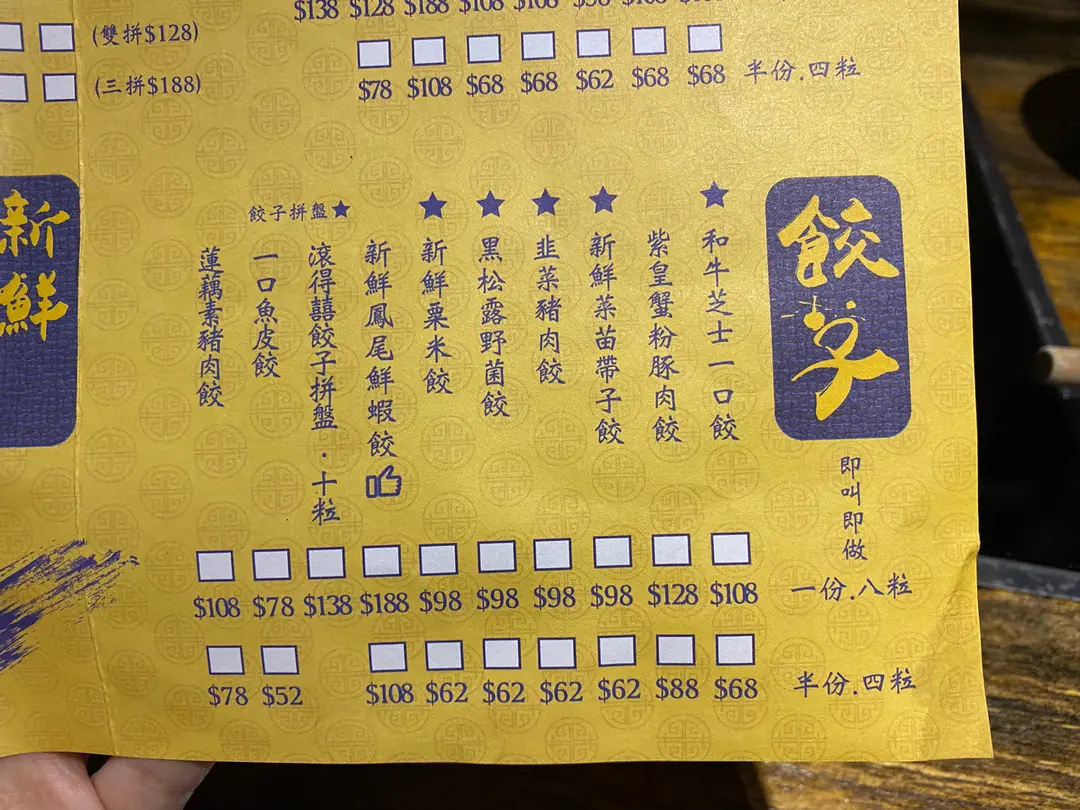 $138 $128 $188 $108 $108 $98
(雙拼$128)
(三拼$188)
$78 $108 $68 $68 $62 $68 $68 半份.四粒
新鮮
餃子
即叫即做
和牛芝士一口餃
紫皇蟹粉豚肉餃
新鮮菜苗帶子餃
韭菜豬肉餃
黑松露野菌餃
新鮮粟米餃
新鮮鳳尾鮮蝦餃
餃子拼盤
滾得囍餃子拼盤.十粒
一口魚皮餃
蓮藕素豬肉餃
$108 $78 $138 $188 $98 $98 $98 $98 $128 $108 一份.八粒
$78 $52 $108 $62 $62 $62 $62 $88 $68 半份.四粒